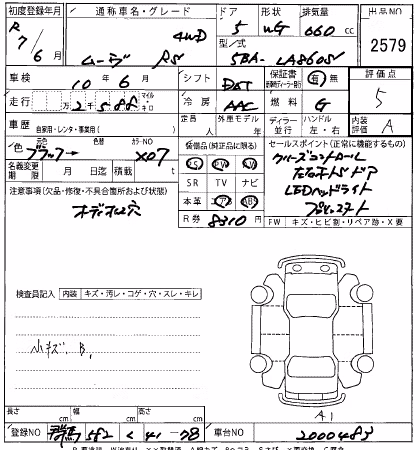 初度登録年月 通称車名・グレード ドア 形状 排気量 出品NO
R 7/6月 ムーヴ RS 4WD 5 WG 660cc 2579
型/式 5BA-LA860S
車検 10年 6月 シフト DAT 保証書 有 無 評価点
走行 2千588 マイル キロ 冷房 AAC 燃料 G 5
車歴 自家用・レンタ・事業用( ) 定員 人 外車モデル 年 ディーラー 並行 ハンドル 左・右 内装評価 A
色 元色 ブラック→ 色替 カラーNO X07 装備品(純正品に限る) セールスポイント(正常に機能するもの)
PS PW SR TV ナビ クルーズコントロール
名義変更期限 月 日迄 積載 t 本革 エアB ABS
左右オートドア
LEDヘッドライト
注意事項(欠品・修復・不具合箇所および状態) R券 8310円 プッシュスタート
オーディオレス穴 FW キズ・ヒビ割・リペア跡・X・要
検査員記入 内装 キズ・汚レ・コゲ・穴・スレ・キレ
小キズ. B.
A1
長さ cm 幅 cm 高さ cm
登録NO 群馬 582 く 41-78 車台NO 2000483